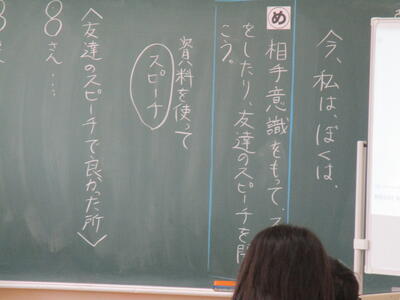 今、私は、ぼくは、
め
相手意識をもって、ス
をしたり、友達のスピーチを聞
こう。
資料を使って
スピーチ
〈友達のスピーチで良かった所〉
さん…